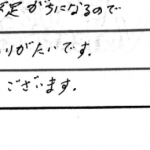 足がちになるので
りがたいです.
ございます.